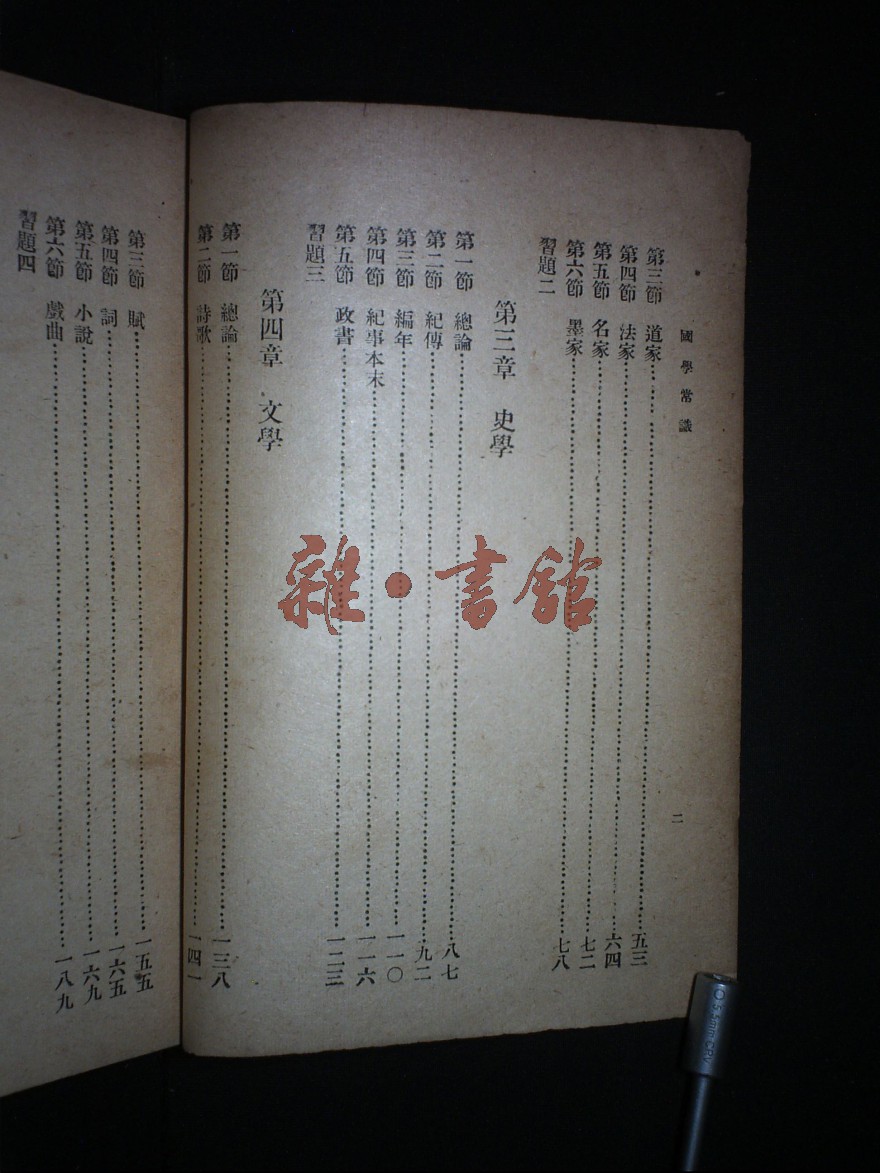 國學常識
二
第三節 道家……五三
第四節 法家……六四
第五節 名家……七二
第六節 墨家……七八
習題二
第三章 史學
第一節 總論……八七
第二節 紀傳……九二
第三節 編年……一一〇
第四節 紀事本末……一一六
第五節 政書……一二三
習題三
第四章 文學
第一節 總論……一三八
第二節 詩歌……一四一
第三節 賦……一五五
第四節 詞……一六五
第五節 小說……一六九
第六節 戲曲……一八九
習題四
雜·書館
5.5mm CRV